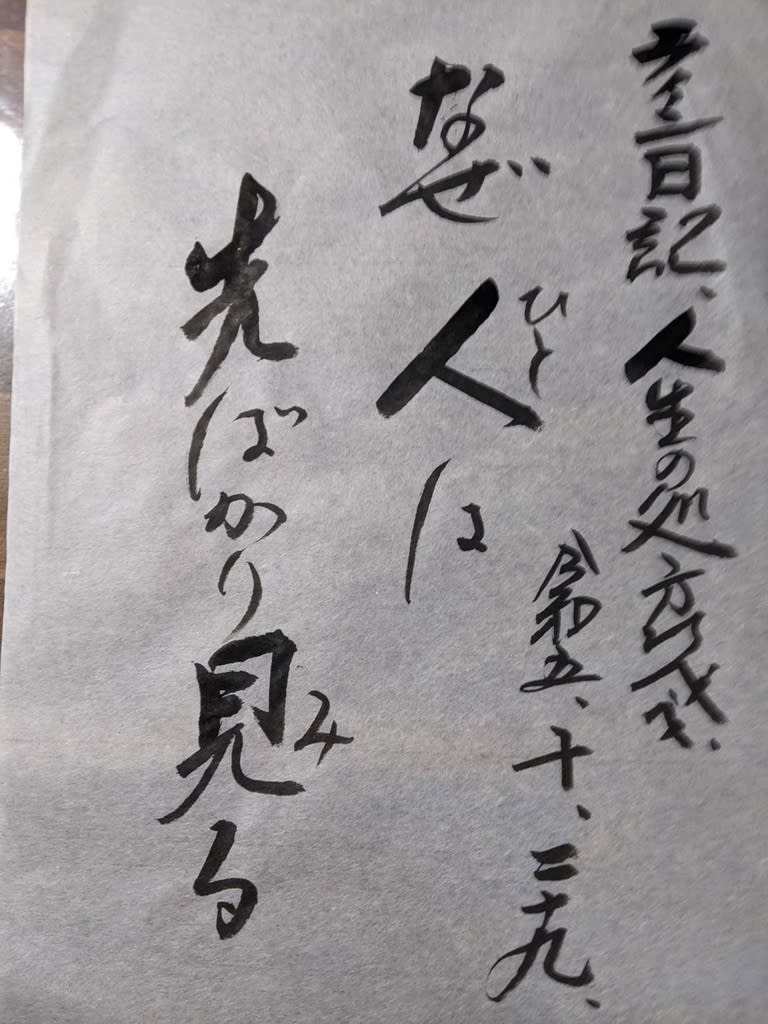 日記、人生の処方箋、
令和五、十、二十九、
ひと
なぜ人は
み
先ばかり見る